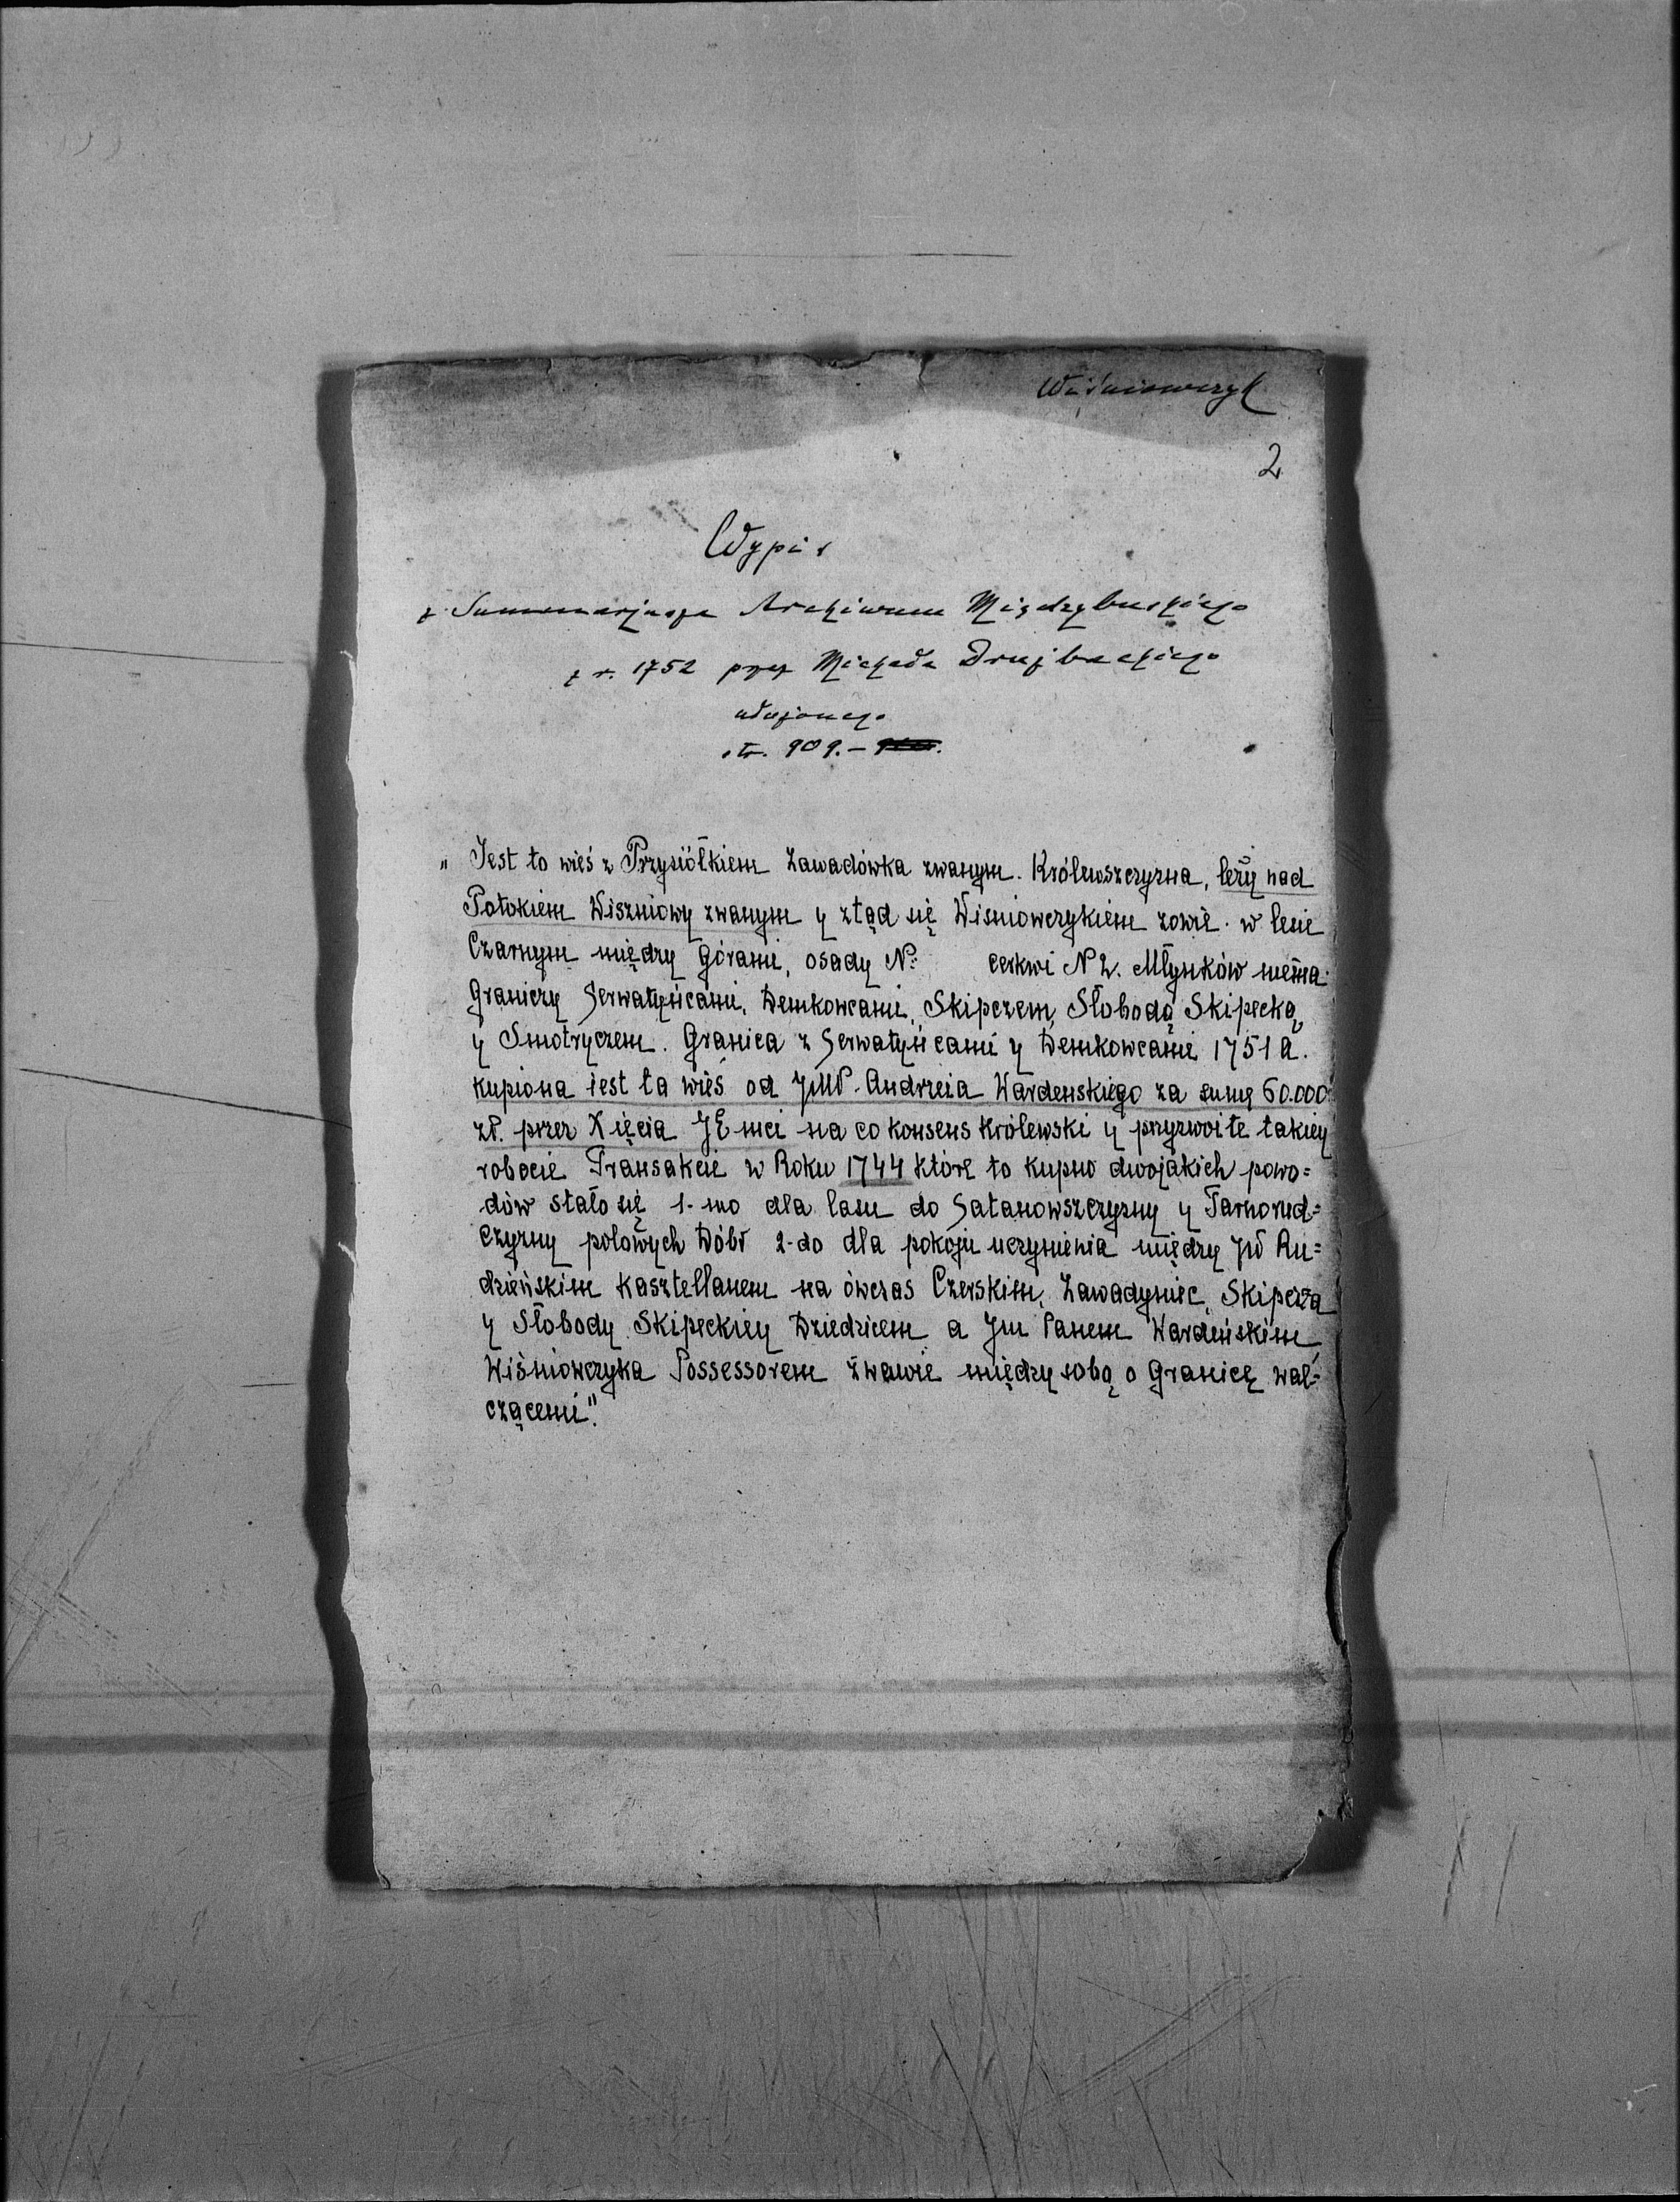 Wiśniowczyk
2
Wypis
z Summarjusza Archiwum Międzybuskiego
z r. 1752 przez Michała Drużbackiego
ułożonego
str. 909. –
„ Jest to wieś z Przysiółkiem Zawadówka zwanym. Królewszczyzna, leży nad
Potokiem Wiszniowy zwanym y ztąd się Wisniowczykiem zowie. w lesie
Czarnym między Górami, osady N: cerkwi N 2. Młynków niema.
Graniczy Serwatyńcami, Demkowcami, Skipczem, Słobodą Skipecką,
y Smotryczem. Granica z Serwatyńcami y Demkowcami 1751 a.
kupiona iest ta wieś od JMP. Andrzeia Wardenskiego za sumę 60.000
zł. przez Xięcia JE mci na co konsens Królewski y przyzwoite takiey
robocie Transakcie w Roku 1744 które to kupno dwojakich powo=
dów stało się 1-mo dla lasu do Satanowszczyzny y Tarnorud=
czyzny polowych Dóbr 2-do dla pokoju uczynienia między JW Ru=
dzieńskim Kasztellanem na ówczas Czerskim, Zawadyniec, Skipcza
y Słobody Skipeckiey Dziedzicem a Jm Panem Wardeńskim,
Wiśniowczyka Possessorem żwawie między sobą o Granicę wal=
czącemi".